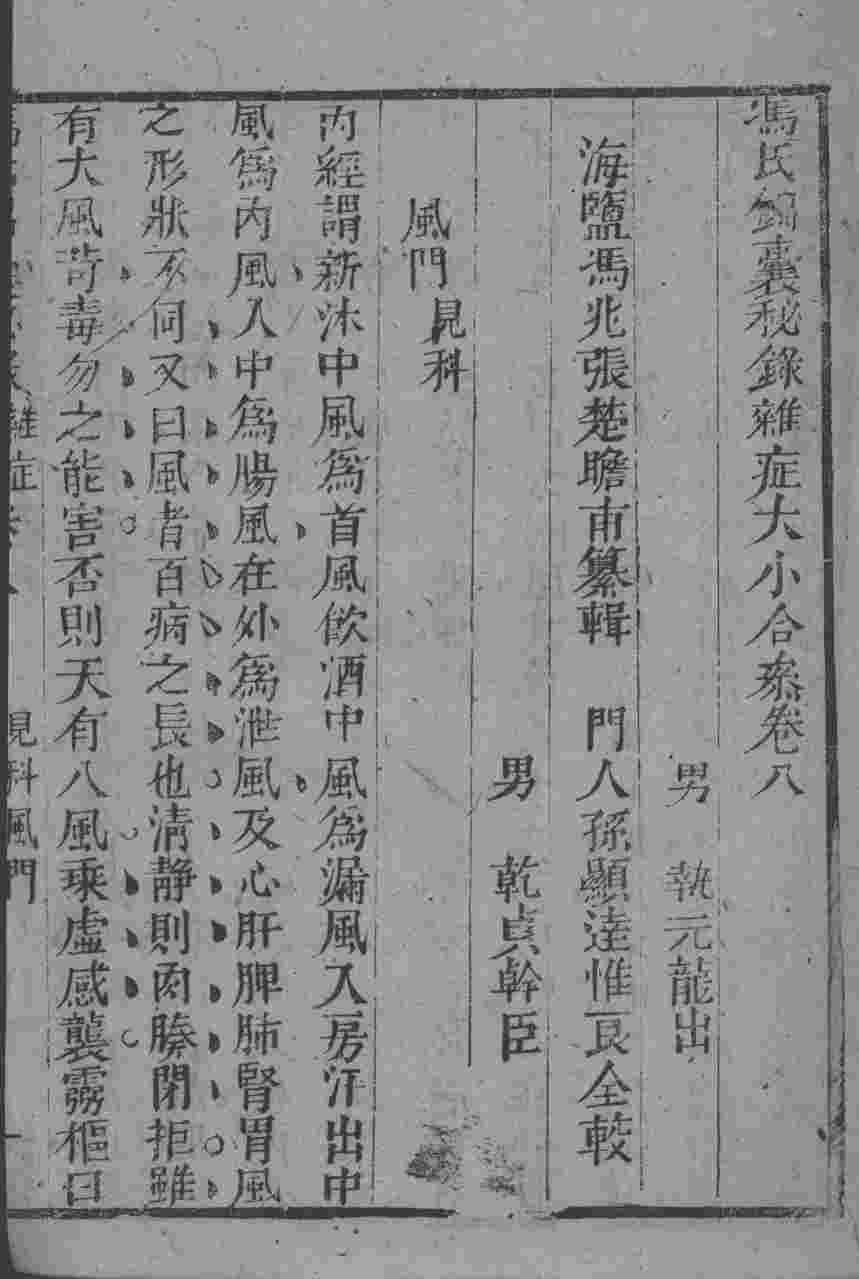 馮氏錦囊秘錄雜症大小合叅卷八
男　執元龍出
海鹽馮兆張楚瞻甫纂輯　門人孫顯達惟良仝較
男　乾貞幹臣
風門見科
內經謂新沐中風爲首風飲酒中風爲漏風入房汗出中
風爲內風入中爲腸風在外爲泄風及心肝脾肺腎胃風
之形狀不同又曰風者百病之長也清静則肉腠閉拒雖
有大風苛毒勿之能害否則天有八風乘虛感襲靈樞曰
雜症　見科風門　一